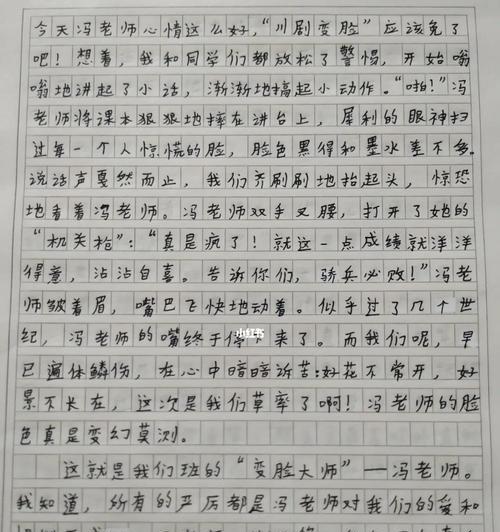 今天冯老师心情这么好，“川剧变脸”应该免了
吧！想着，我和同学们都放松了警惕，开始嗡
嗡地讲起了小话，渐渐地搞起小动作。“啪！”冯
老师将课本狠狠地摔在讲台上，犀利的眼神扫
过每一个人惊慌的脸，脸色黑得和墨水差不多。
说话声戛然而止，我们齐刷刷地抬起头，惊恐
地看着冯老师。冯老师双手叉腰，打开了她的
“机关枪”：“真是疯了！就这一点成绩就洋洋
得意，沾沾自喜。告诉你们，骄兵必败！”冯老
师皱着眉，嘴巴飞快地动着。似乎过了几个世
纪，冯老师的嘴终于停下来了。而我们呢，早
已遍体鳞伤，在心中暗暗诉苦：好花不常开，好
景不长在，这次是我们草率了啊！冯老师的脸
色真是变幻莫测。
这就是我们班的“变脸大师”——冯老师。
我知道，所有的严厉都是冯老师对我们的爱和
小红书